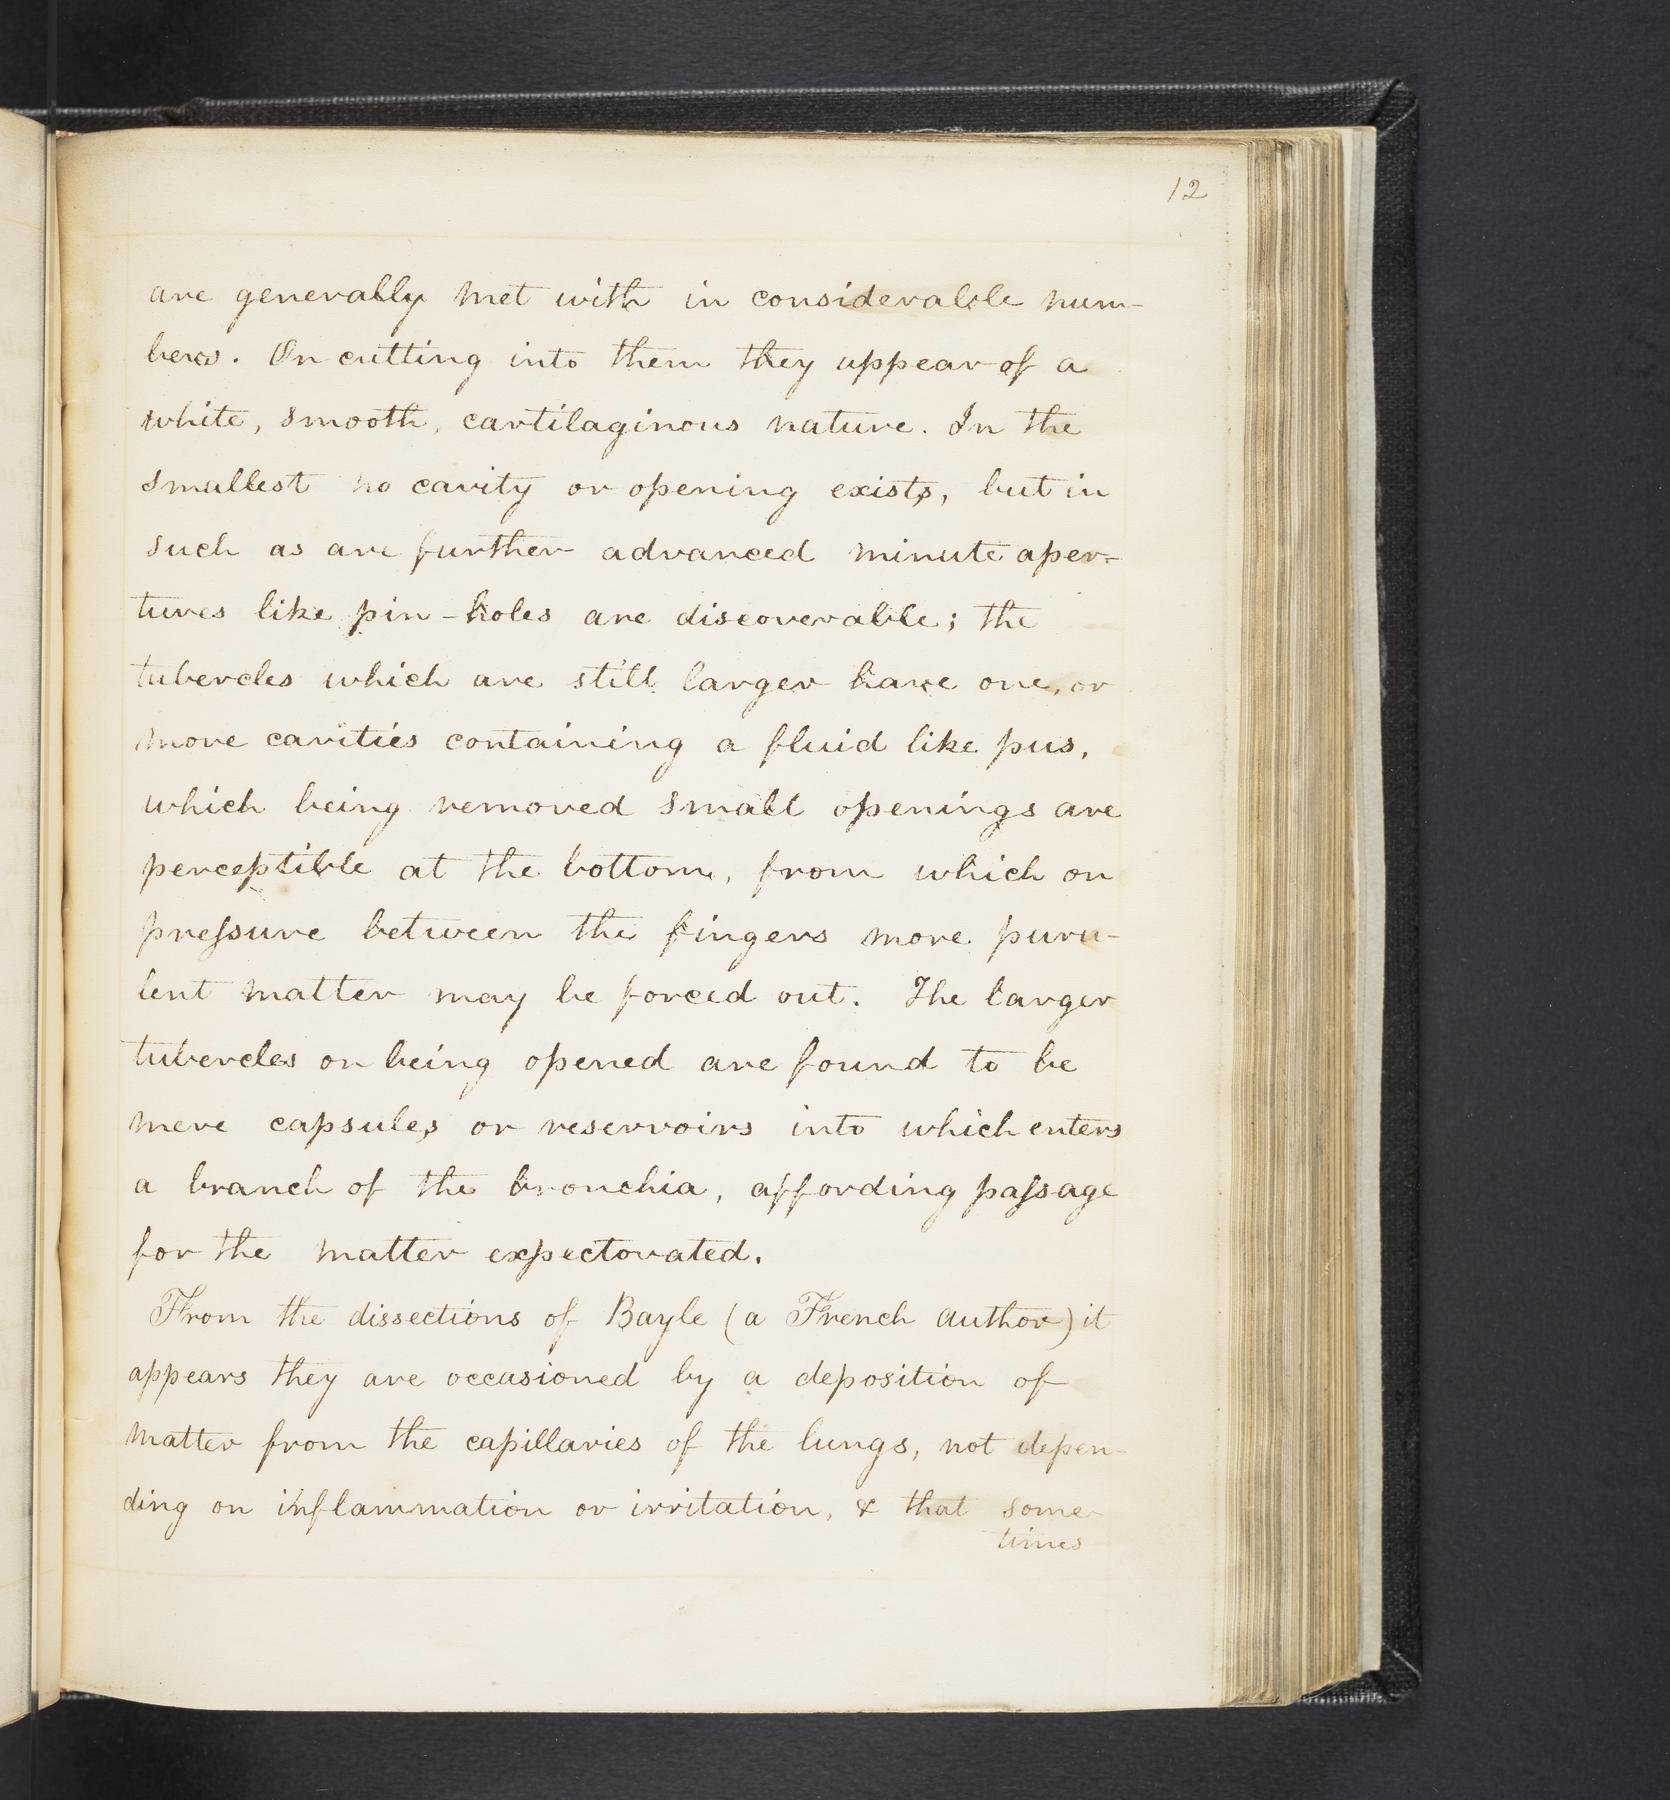 12
are generally met with in considerable num-
bers. On cutting into them they appear of a
white, smooth, cartilaginous nature. In the
smallest no cavity or opening exists, but in
such as are further advanced minute aper-
tures like pin-holes are discoverable; the
tubercles which are still larger have one, or
more cavities containing a fluid like pus,
which being removed small openings are
perceptible at the bottom, from which on
preſsure between the fingers more puru-
lent matter may be forced out. The larger
tubercles on being opened are found to be
mere capsules or reservoirs into which enters
a branch of the bronchia, affording paſsage
for the matter expectorated.
From the dissections of Bayle (a French author) it
appears they are occasioned by a deposition of
matter from the capillaries of the lungs, not depen-
ding on inflammation or irritation, & that some-
times